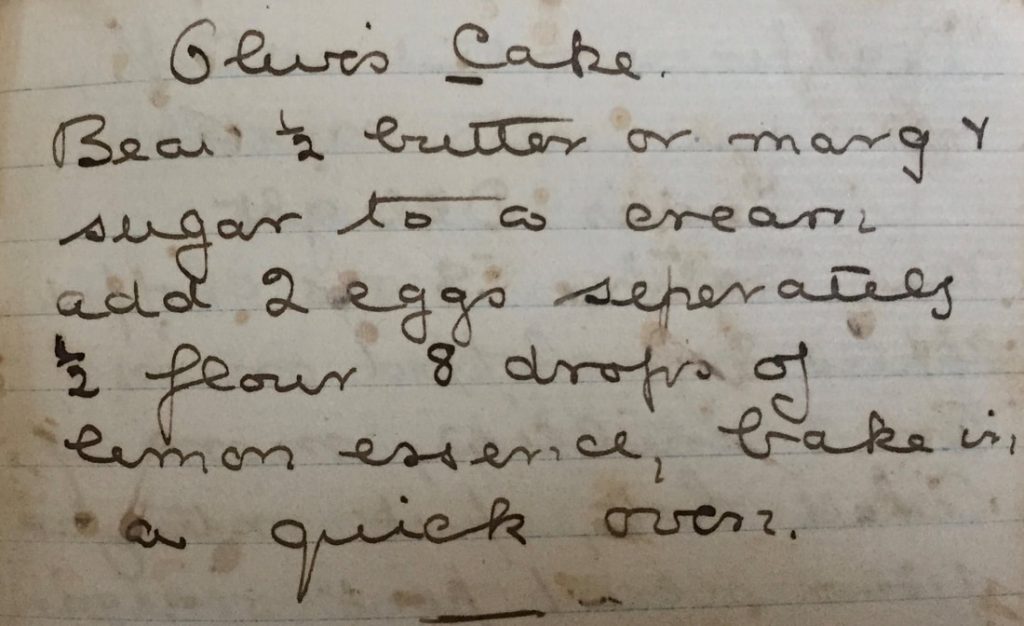 Olive's Cake.
Beat ½ butter or marg &
sugar to a cream
add 2 eggs seperately
½ flour 8 drops of
lemon essence, bake in
a quick oven.